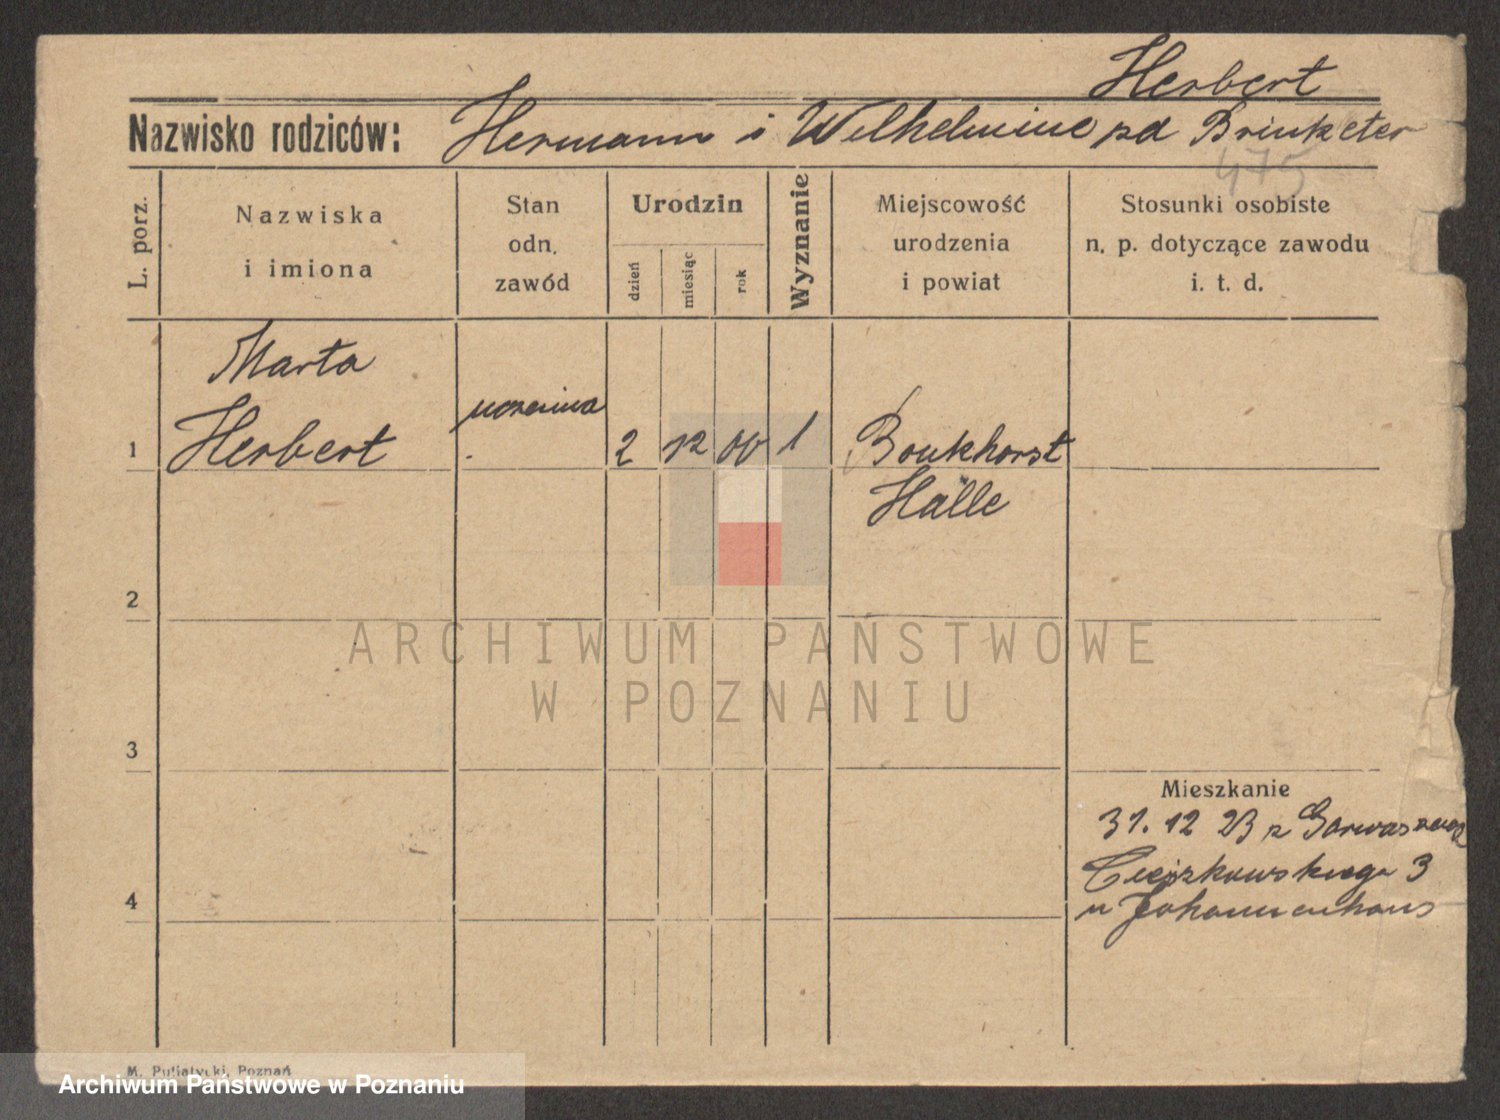 Herbert
Nazwisko rodziców: Hermann i Wilhelmine pd Brinketer
475
L. porz.
Nazwiska
i imiona
Stan
odn.
zawód
Urodzin
dzień
miesiąc
rok
Wyznanie
Miejscowość
urodzenia
i powiat
Stosunki osobiste
n. p. dotyczące zawodu
i. t. d.
Marta
1 Herbert uczenica 2 12 00 1 Bonkhorst
Halle
2
ARCHIWUM PAŃSTWOWE
W POZNANIU
3
Mieszkanie
31. 12 23 z
Cieszkowskiego 3
u Johannenhaus
4
M. Putiatycki, Poznań
Archiwum Państwowe w Poznaniu